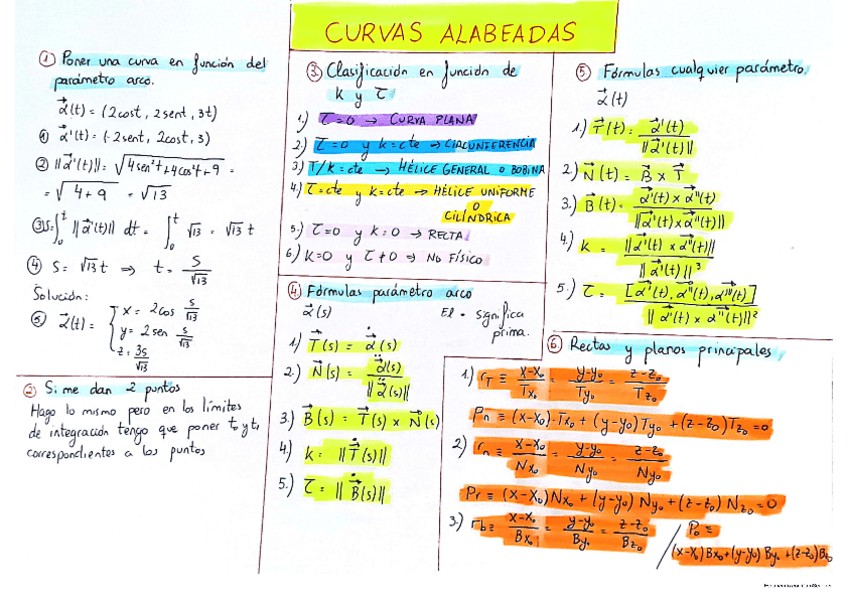 CURVAS ALABEADAS
① Poner una curva en función del
parámetro arco.
α⃗(t) = (2cost, 2sent, 3t)
① α⃗'(t) = (-2sent, 2cost, 3)
② ||α⃗'(t)|| = √(4sen²t+4cos²t+9) =
= √(4+9) = √13
③ S=∫₀ᵗ ||α⃗'(t)|| dt = ∫₀ᵗ √13 = √13 t
④ S = √13 t ⇒ t = S/√13
Solución:
⑤ α⃗(t) = { x = 2cos S/√13
y = 2sen S/√13
z = 3S/√13
② Si me dan 2 puntos
Hago lo mismo pero en los límites
de integración tengo que poner t₀ y t₁
correspondientes a los puntos
③ Clasificación en función de
k y τ
1.) τ=0 → CURVA PLANA
2) τ=0 y k=cte → CIRCUNFERENCIA
3) τ/k = cte → HÉLICE GENERAL O BOBINA
4) τ=cte y k=cte → HÉLICE UNIFORME
O
CILÍNDRICA
5.) τ=0 y k=0 → RECTA
6) k=0 y τ≠0 ⇒ NO FÍSICO
④ Fórmulas parámetro arco
α⃗(s) El • significa
prima.
1) T⃗(s) = α⃗̇(s)
2.) N⃗(s) = α⃗̈(s)/||α⃗̈(s)||
3.) B⃗(s) = T⃗(s) x N⃗(s)
4.) k = ||T⃗̇(s)||
5.) τ = ||B⃗̇(s)||
⑤ Fórmulas cualquier parámetro
α⃗(t)
1.) T⃗(t) = α⃗'(t)/||α⃗'(t)||
2) N⃗(t) = B⃗ x T⃗
3.) B⃗(t) = α⃗'(t) x α⃗''(t)/||α⃗'(t) x α⃗''(t)||
4.) k = ||α⃗'(t) x α⃗''(t)||/||α⃗'(t)||³
5.) τ = [α⃗'(t), α⃗''(t), α⃗'''(t)]/||α⃗'(t) x α⃗''(t)||²
⑥ Rectas y planos principales
1.) r_T ≡ x-x₀/Tx₀ = y-y₀/Ty₀ = z-z₀/Tz₀
Pn ≡ (x-x₀)·Tx₀ + (y-y₀)Ty₀ + (z-z₀)Tz₀ = 0
2) rn ≡ x-x₀/Nx₀ = y-y₀/Ny₀ = z-z₀/Ny₀
Pr ≡ (x-x₀)Nx₀ + (y-y₀)Ny₀ + (z-z₀)Nz₀ = 0
3.) rb ≡ x-x₀/Bx₀ = y-y₀/By₀ = z-z₀/Bz₀
P₀ ≡
(x-x₀)Bx₀+(y-y₀)By₀+(z-z₀)Bz₀